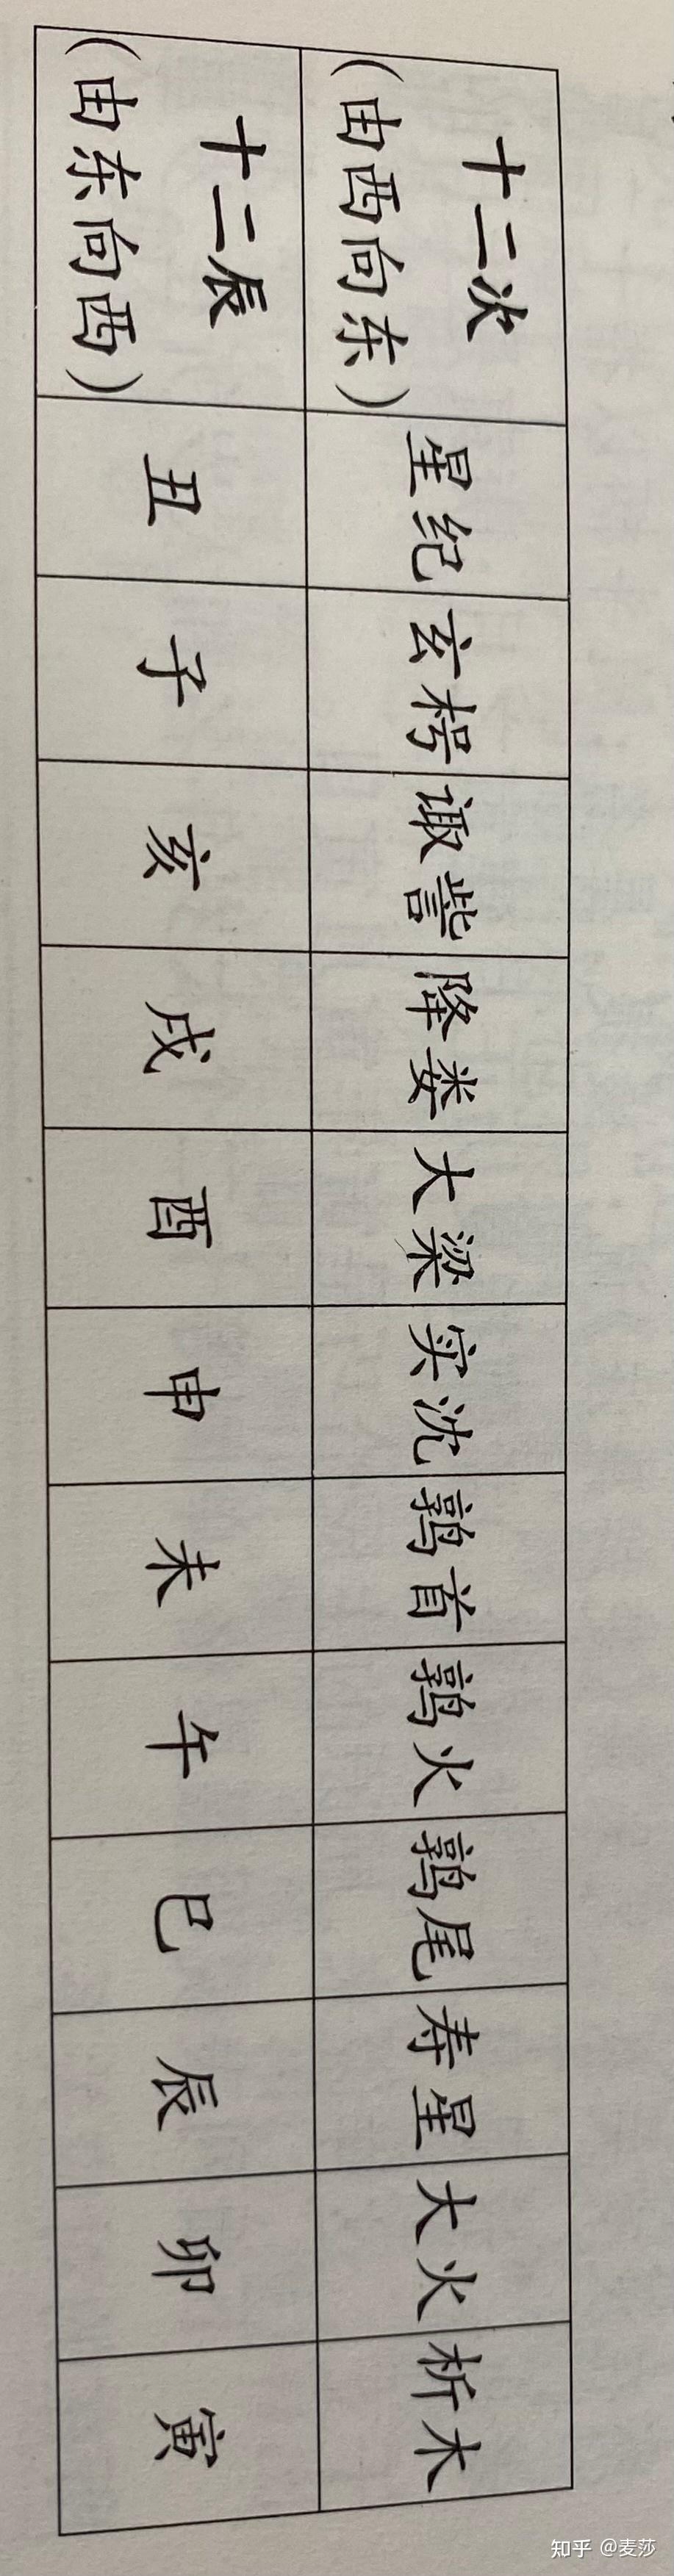 十二次 星纪 玄枵 诹訾 降娄 大梁 实沈 鹑首 鹑火 鹑尾 寿星 大火 析木
(由西向东)
十二辰 丑 子 亥 戌 酉 申 未 午 巳 辰 卯 寅
(由东向西)
知乎 @麦莎